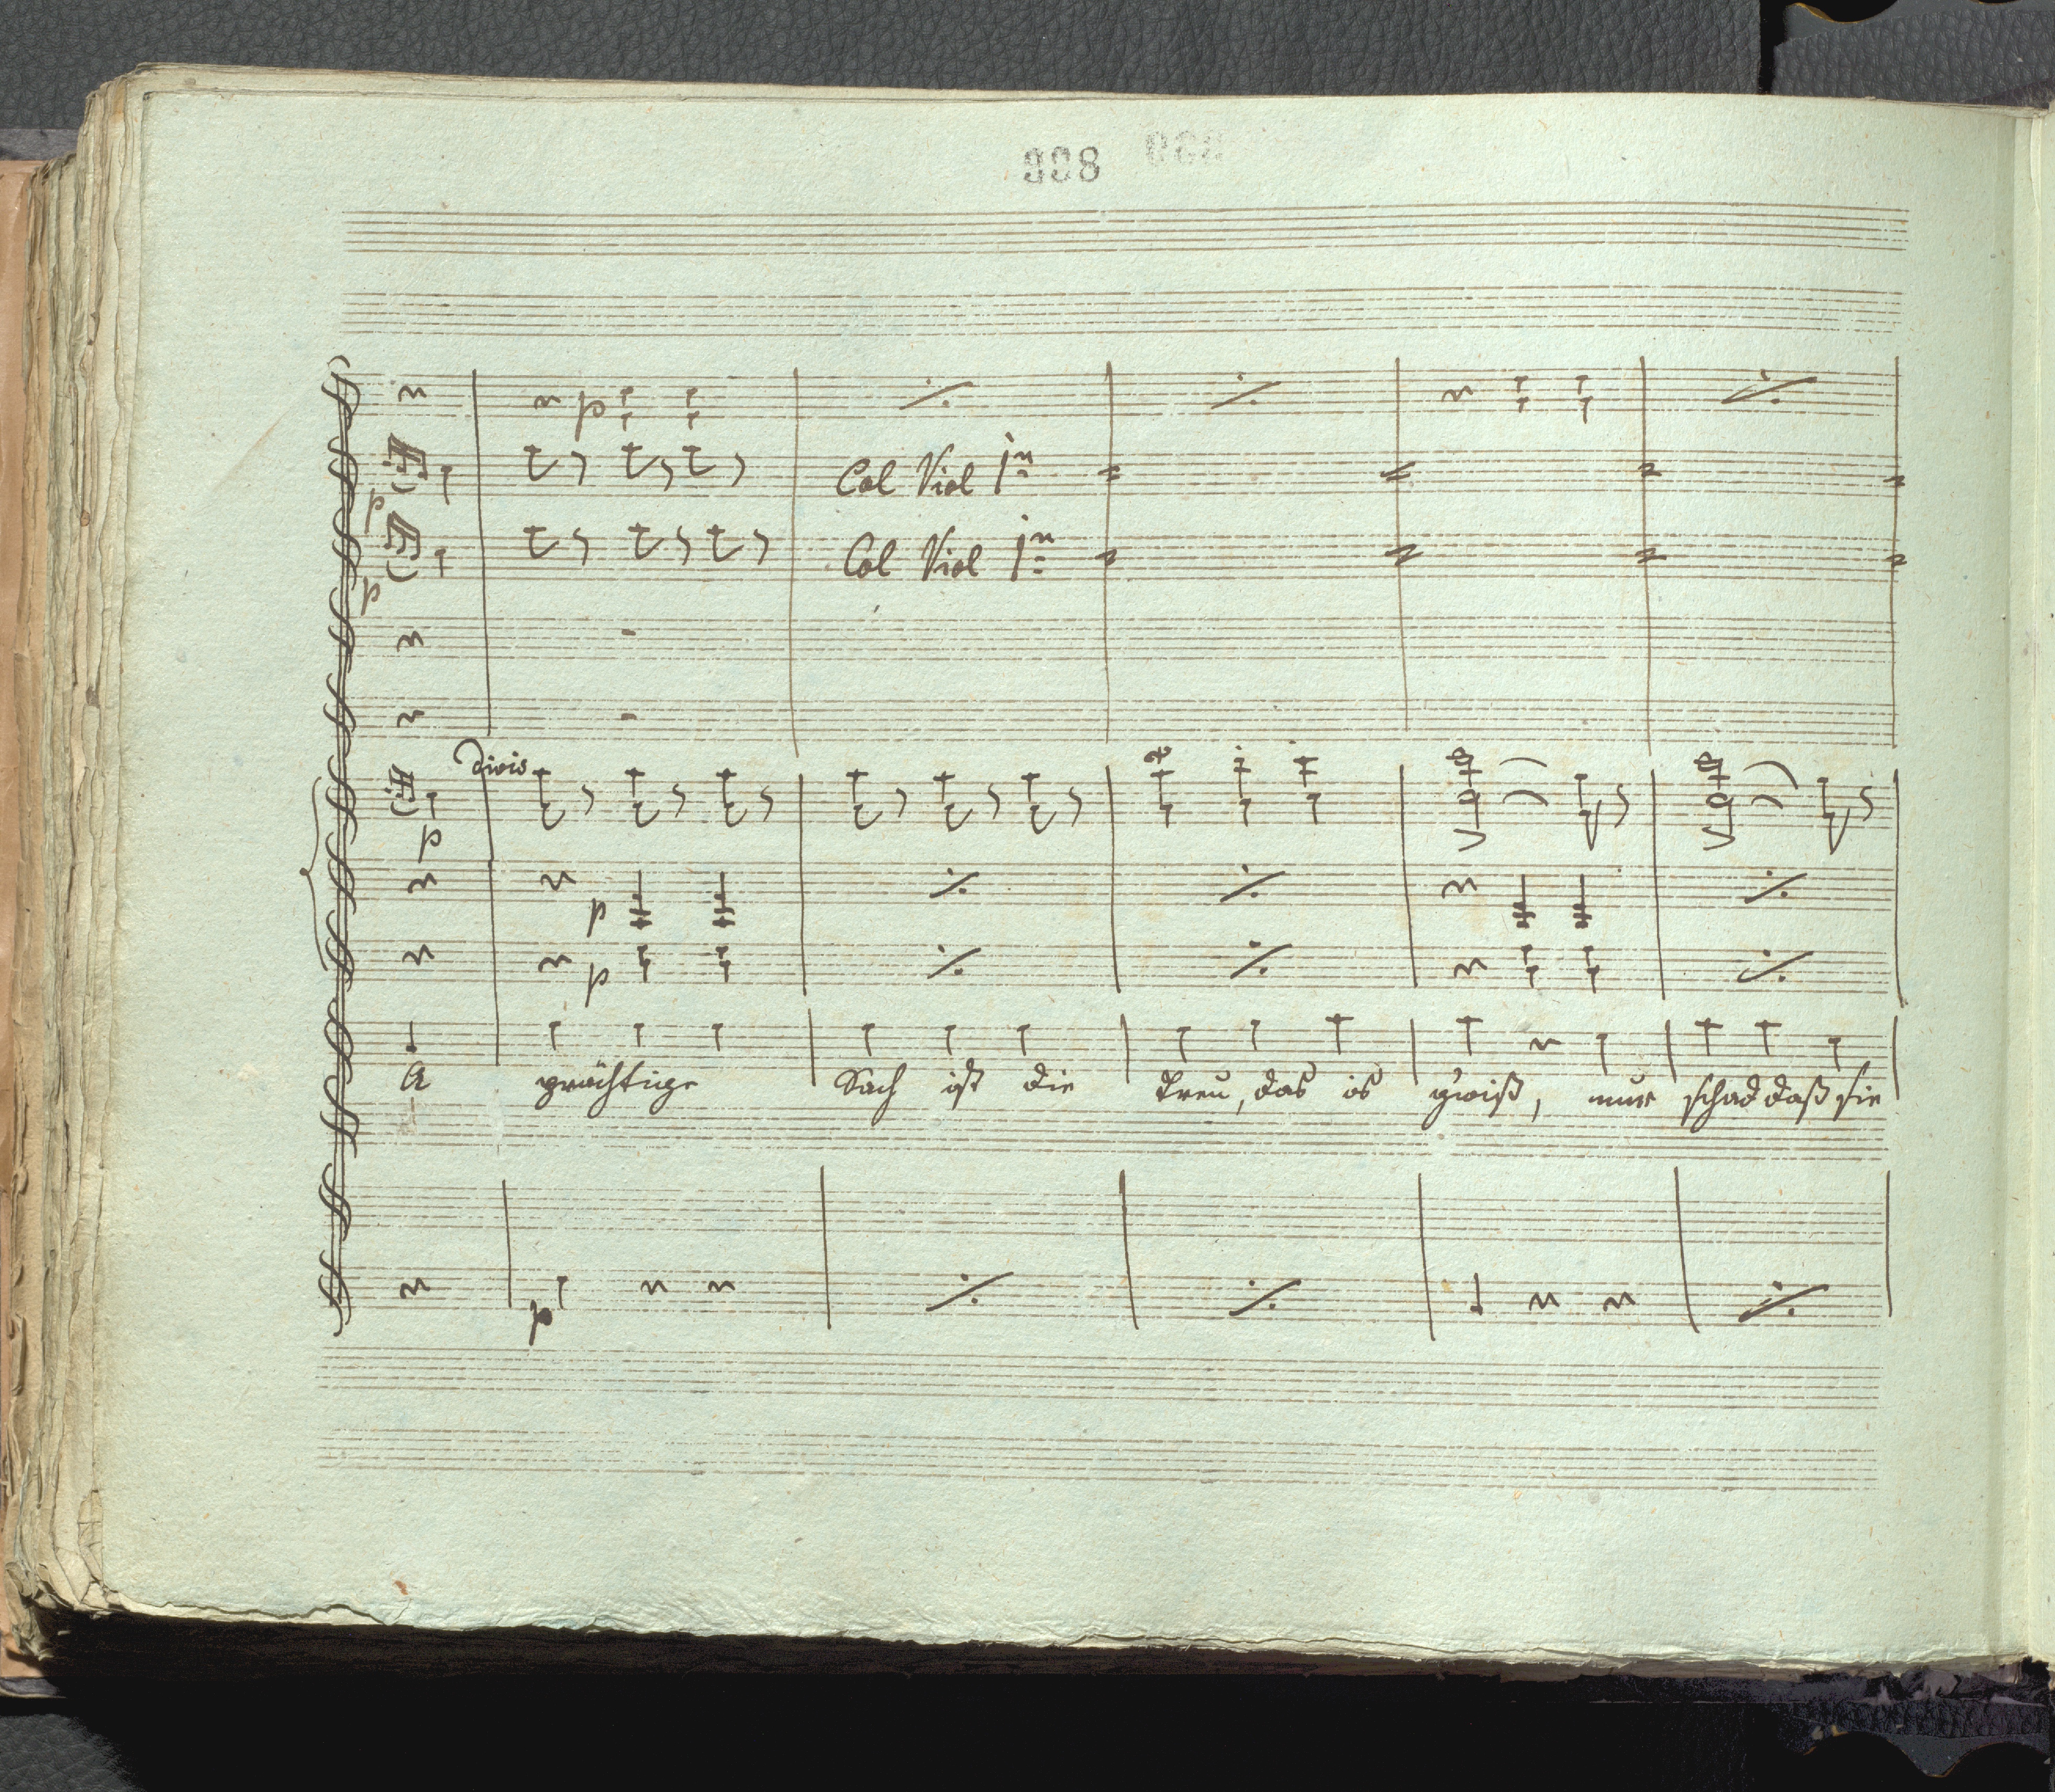 998
p
p
Col Viol 1mo
p
Col Viol 1mo
divis
p
p
p
A prächtige Sach ist die Treu, das is g'wiß, nur schad daß sie
p